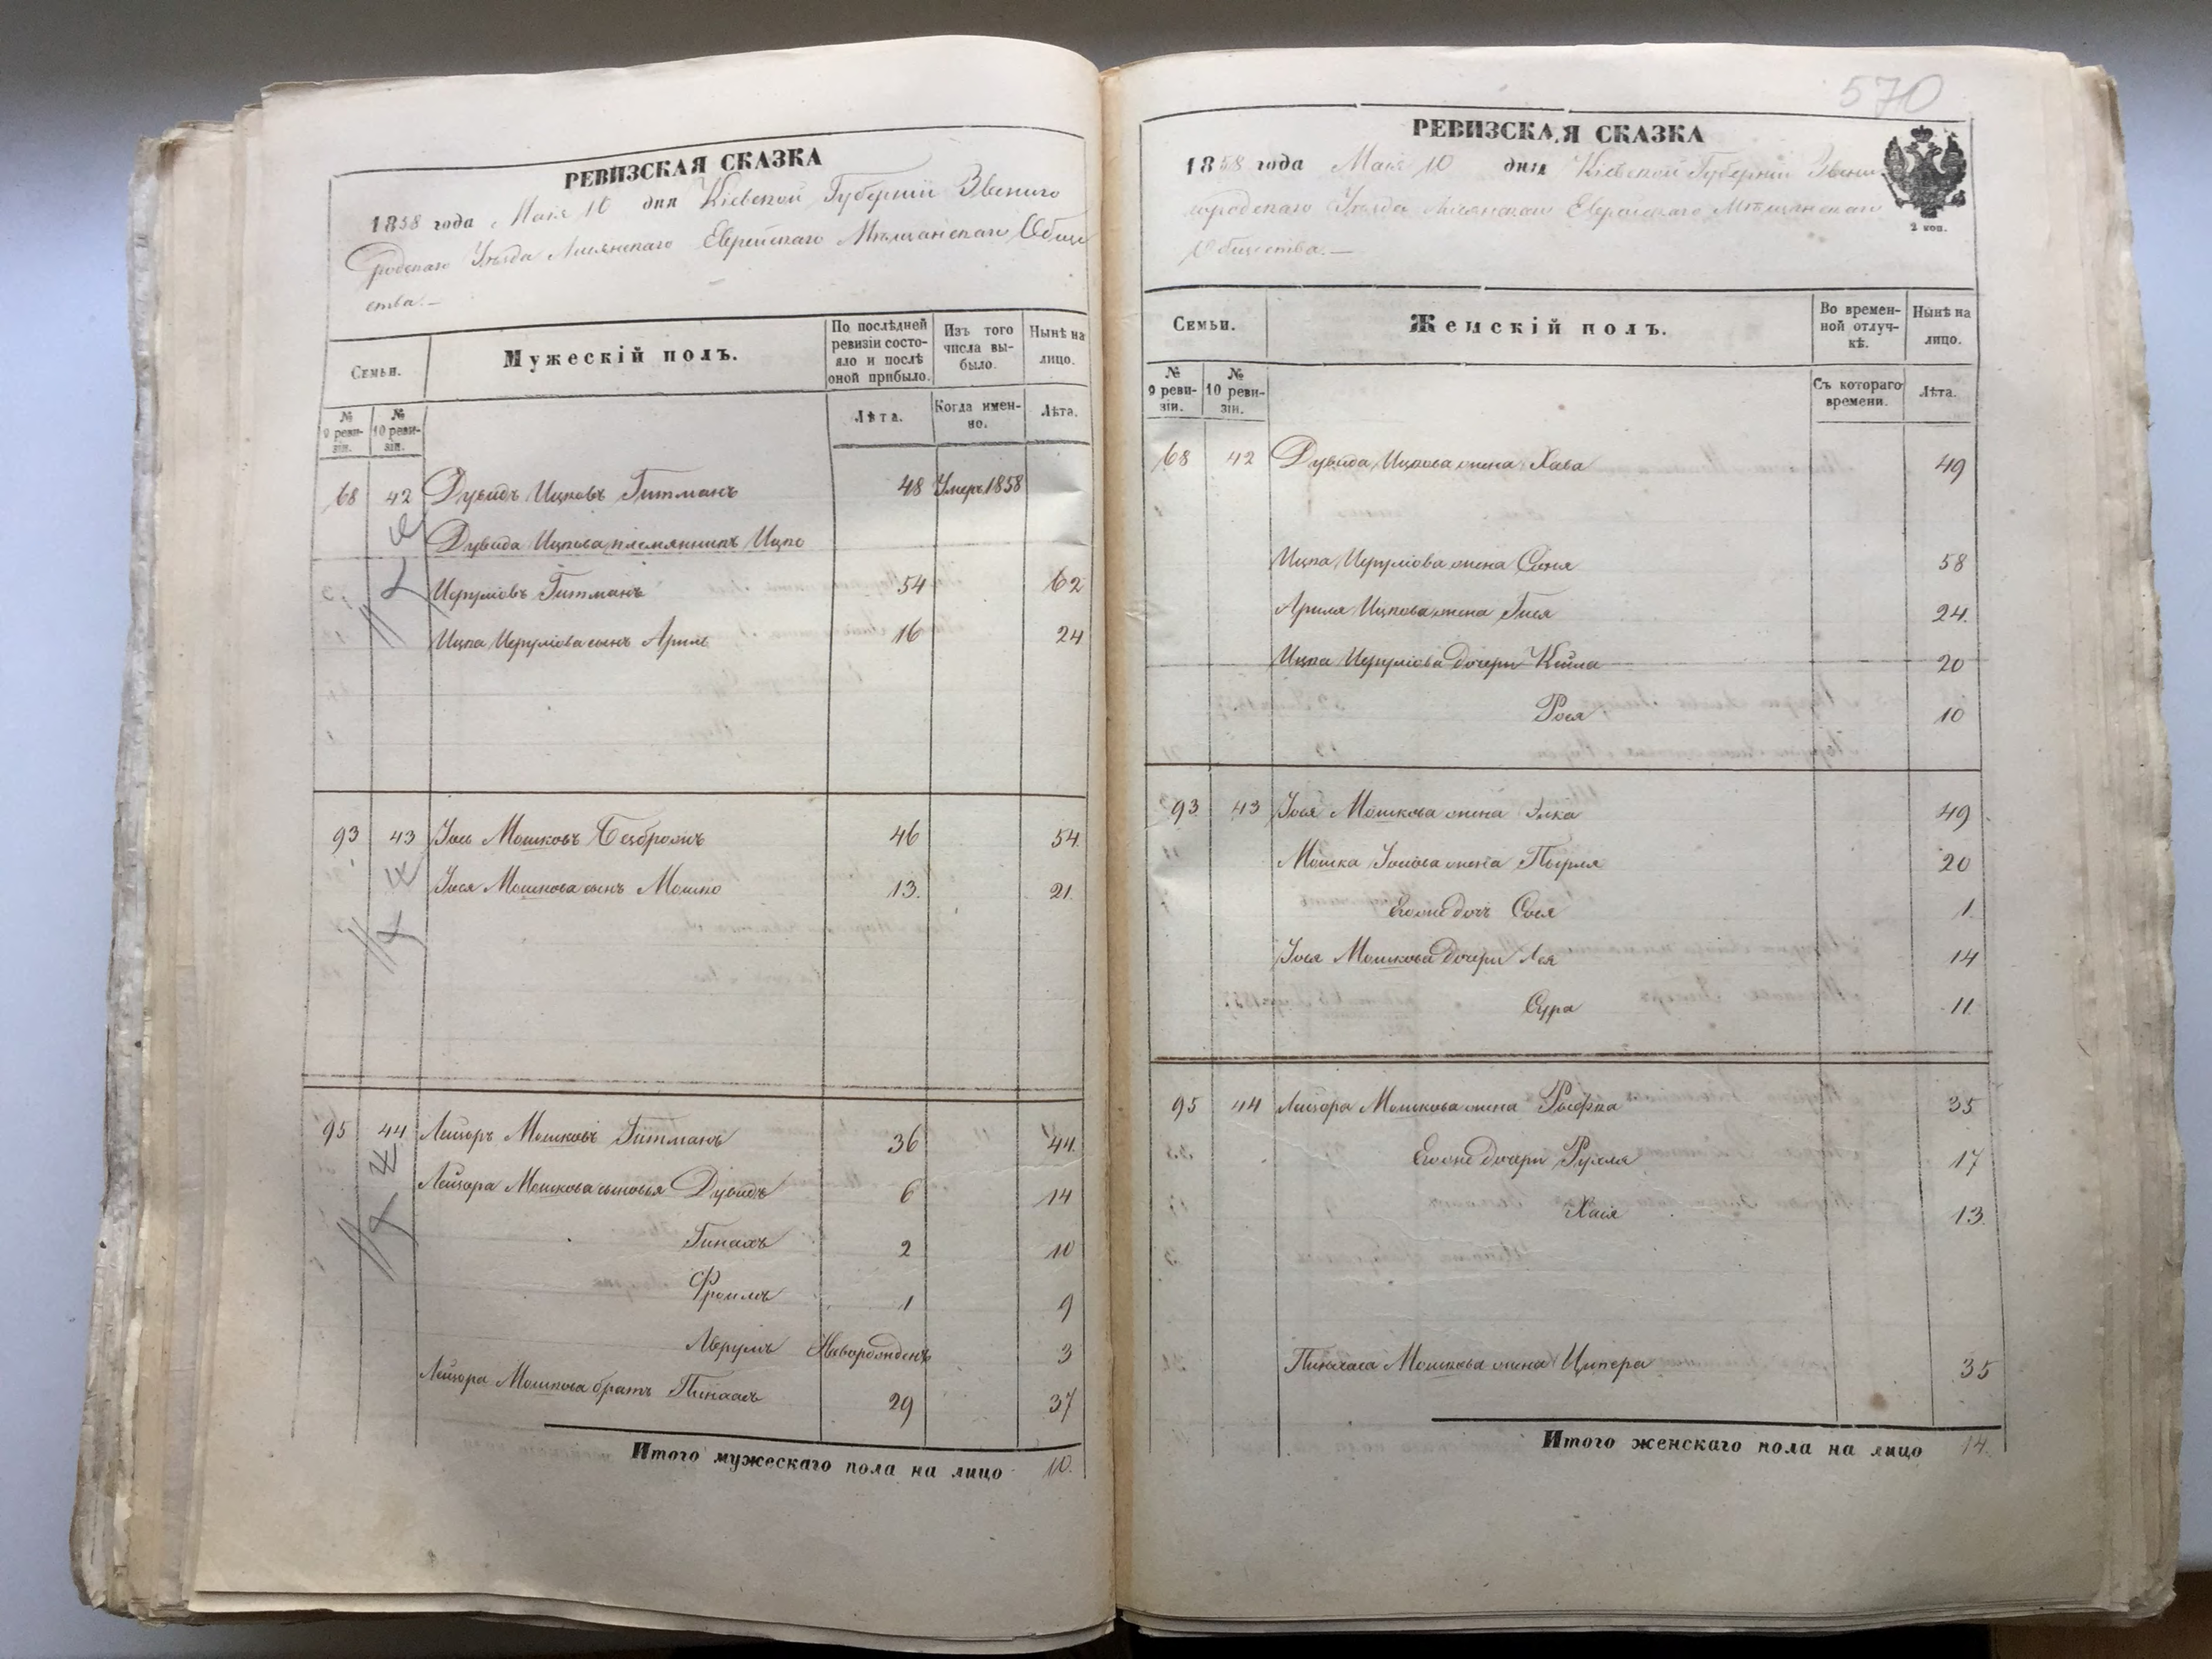 РЕВИЗСКАЯ СКАЗКА
1858 года Маія 10 дня Кіевской Губерніи Звениго
родскаго Уѣзда Лисянскаго Еврейскаго Мѣщанскаго Обще
ства.—
Семьи.
Мужескій полъ.
По послѣдней ревизіи состояло и послѣ оной прибыло.
Изъ того числа выбыло.
Нынѣ на лицо.
№ 9 ревизіи.
№ 10 ревизіи.
Лѣта.
Когда именно.
Лѣта.
68 42 Дувидъ Ицковъ Гитманъ 48 Умеръ 1858
Дувида Ицкова племянникъ Ицко
Иерумовъ Гитманъ 54 62
Ицка Иерумова сынъ Ариль 16 24
93 43 Іось Мошковъ 46 54
Іося Мошкова сынъ Мошко 13. 21.
95 44 Лейзоръ Мошковъ Гитманъ 36 44.
Лейзора Мошкова сыновья Дувидъ 6 14
2 10
Фроимъ 1 9
Аврумъ Новорожденъ 3
Лейзора Мошкова братъ Пинхасъ 29 37
Итого мужескаго пола на лицо 10.
570
РЕВИЗСКАЯ СКАЗКА
1858 года Маія 10 дня Кіевской Губерніи Звени
городскаго Уѣзда Лисянскаго Еврейскаго Мѣщанскаго
Общества.—
2 коп.
Семьи.
Женскій полъ.
Во временной отлучкѣ.
Нынѣ на лицо.
№ 9 ревизіи.
№ 10 ревизіи.
Съ котораго времени.
Лѣта.
68 42 Дувида Ицкова жена Хава 49
Ицка Иерумова жена Сося 58
Ариля Ицкова жена Гися 24.
Ицка Иерумова дочери 20
Рося 10
93 43 Іося Мошкова жена Элка 49
Мошка Іосева жена Перля 20
Егоже дочь Сося 1.
Іося Мошкова дочери Лея 14
Сура 11.
95 44 Лейзора Мошкова жена 35
Егоже дочери Рухля 17
Хася 13.
Пинхаса Мошкова жена Ципера 35
Итого женскаго пола на лицо 14.